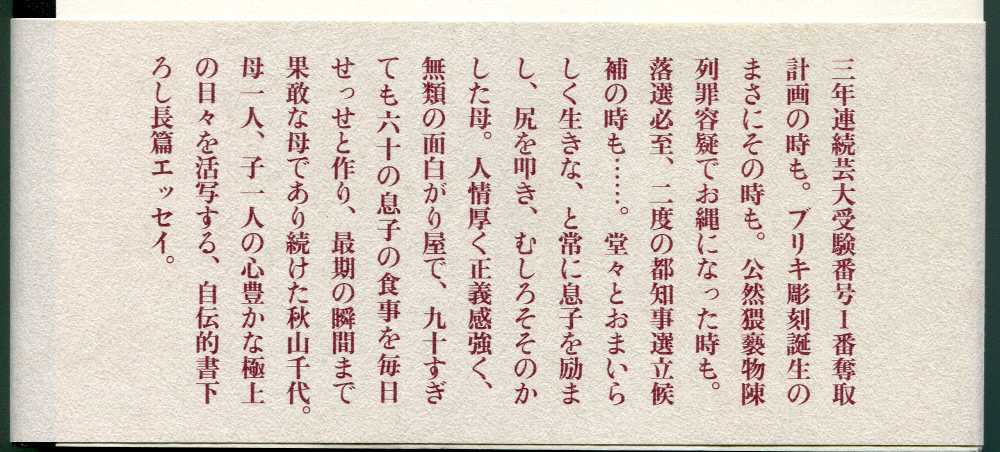 三年連続芸大受験番号1番奪取
計画の時も。ブリキ彫刻誕生の
まさにその時も。公然猥褻物陳
列罪容疑でお縄になった時も。
落選必至、二度の都知事選立候
補の時も……。堂々とおまいら
しく生きな、と常に息子を励ま
し、尻を叩き、むしろそそのか
した母。人情厚く正義感強く、
無類の面白がり屋で、九十すぎ
ても六十の息子の食事を毎日
せっせと作り、最期の瞬間まで
果敢な母であり続けた秋山千代。
母一人、子一人の心豊かな極上
の日々を活写する、自伝的書下
ろし長篇エッセイ。